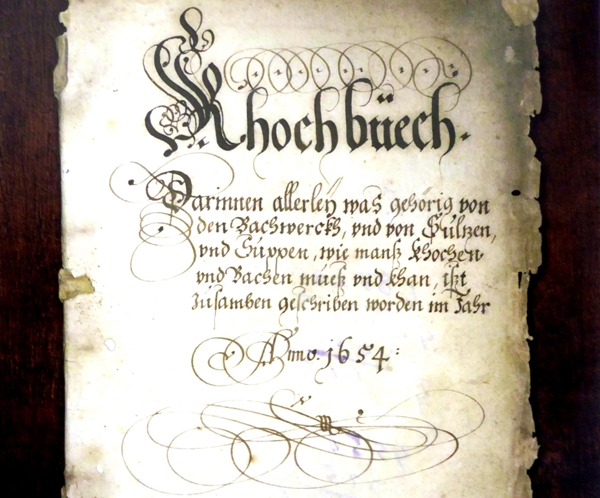 Khochbüech.
Darinnen allerley was gehörig von
den Bachwerckh, vnd von Sültzen,
vnd Suppen, wie manß khochen
vnd Bachen müeß vnd khan, ißt
zusamben geschriben worden im Jahr
Anno. 1654: